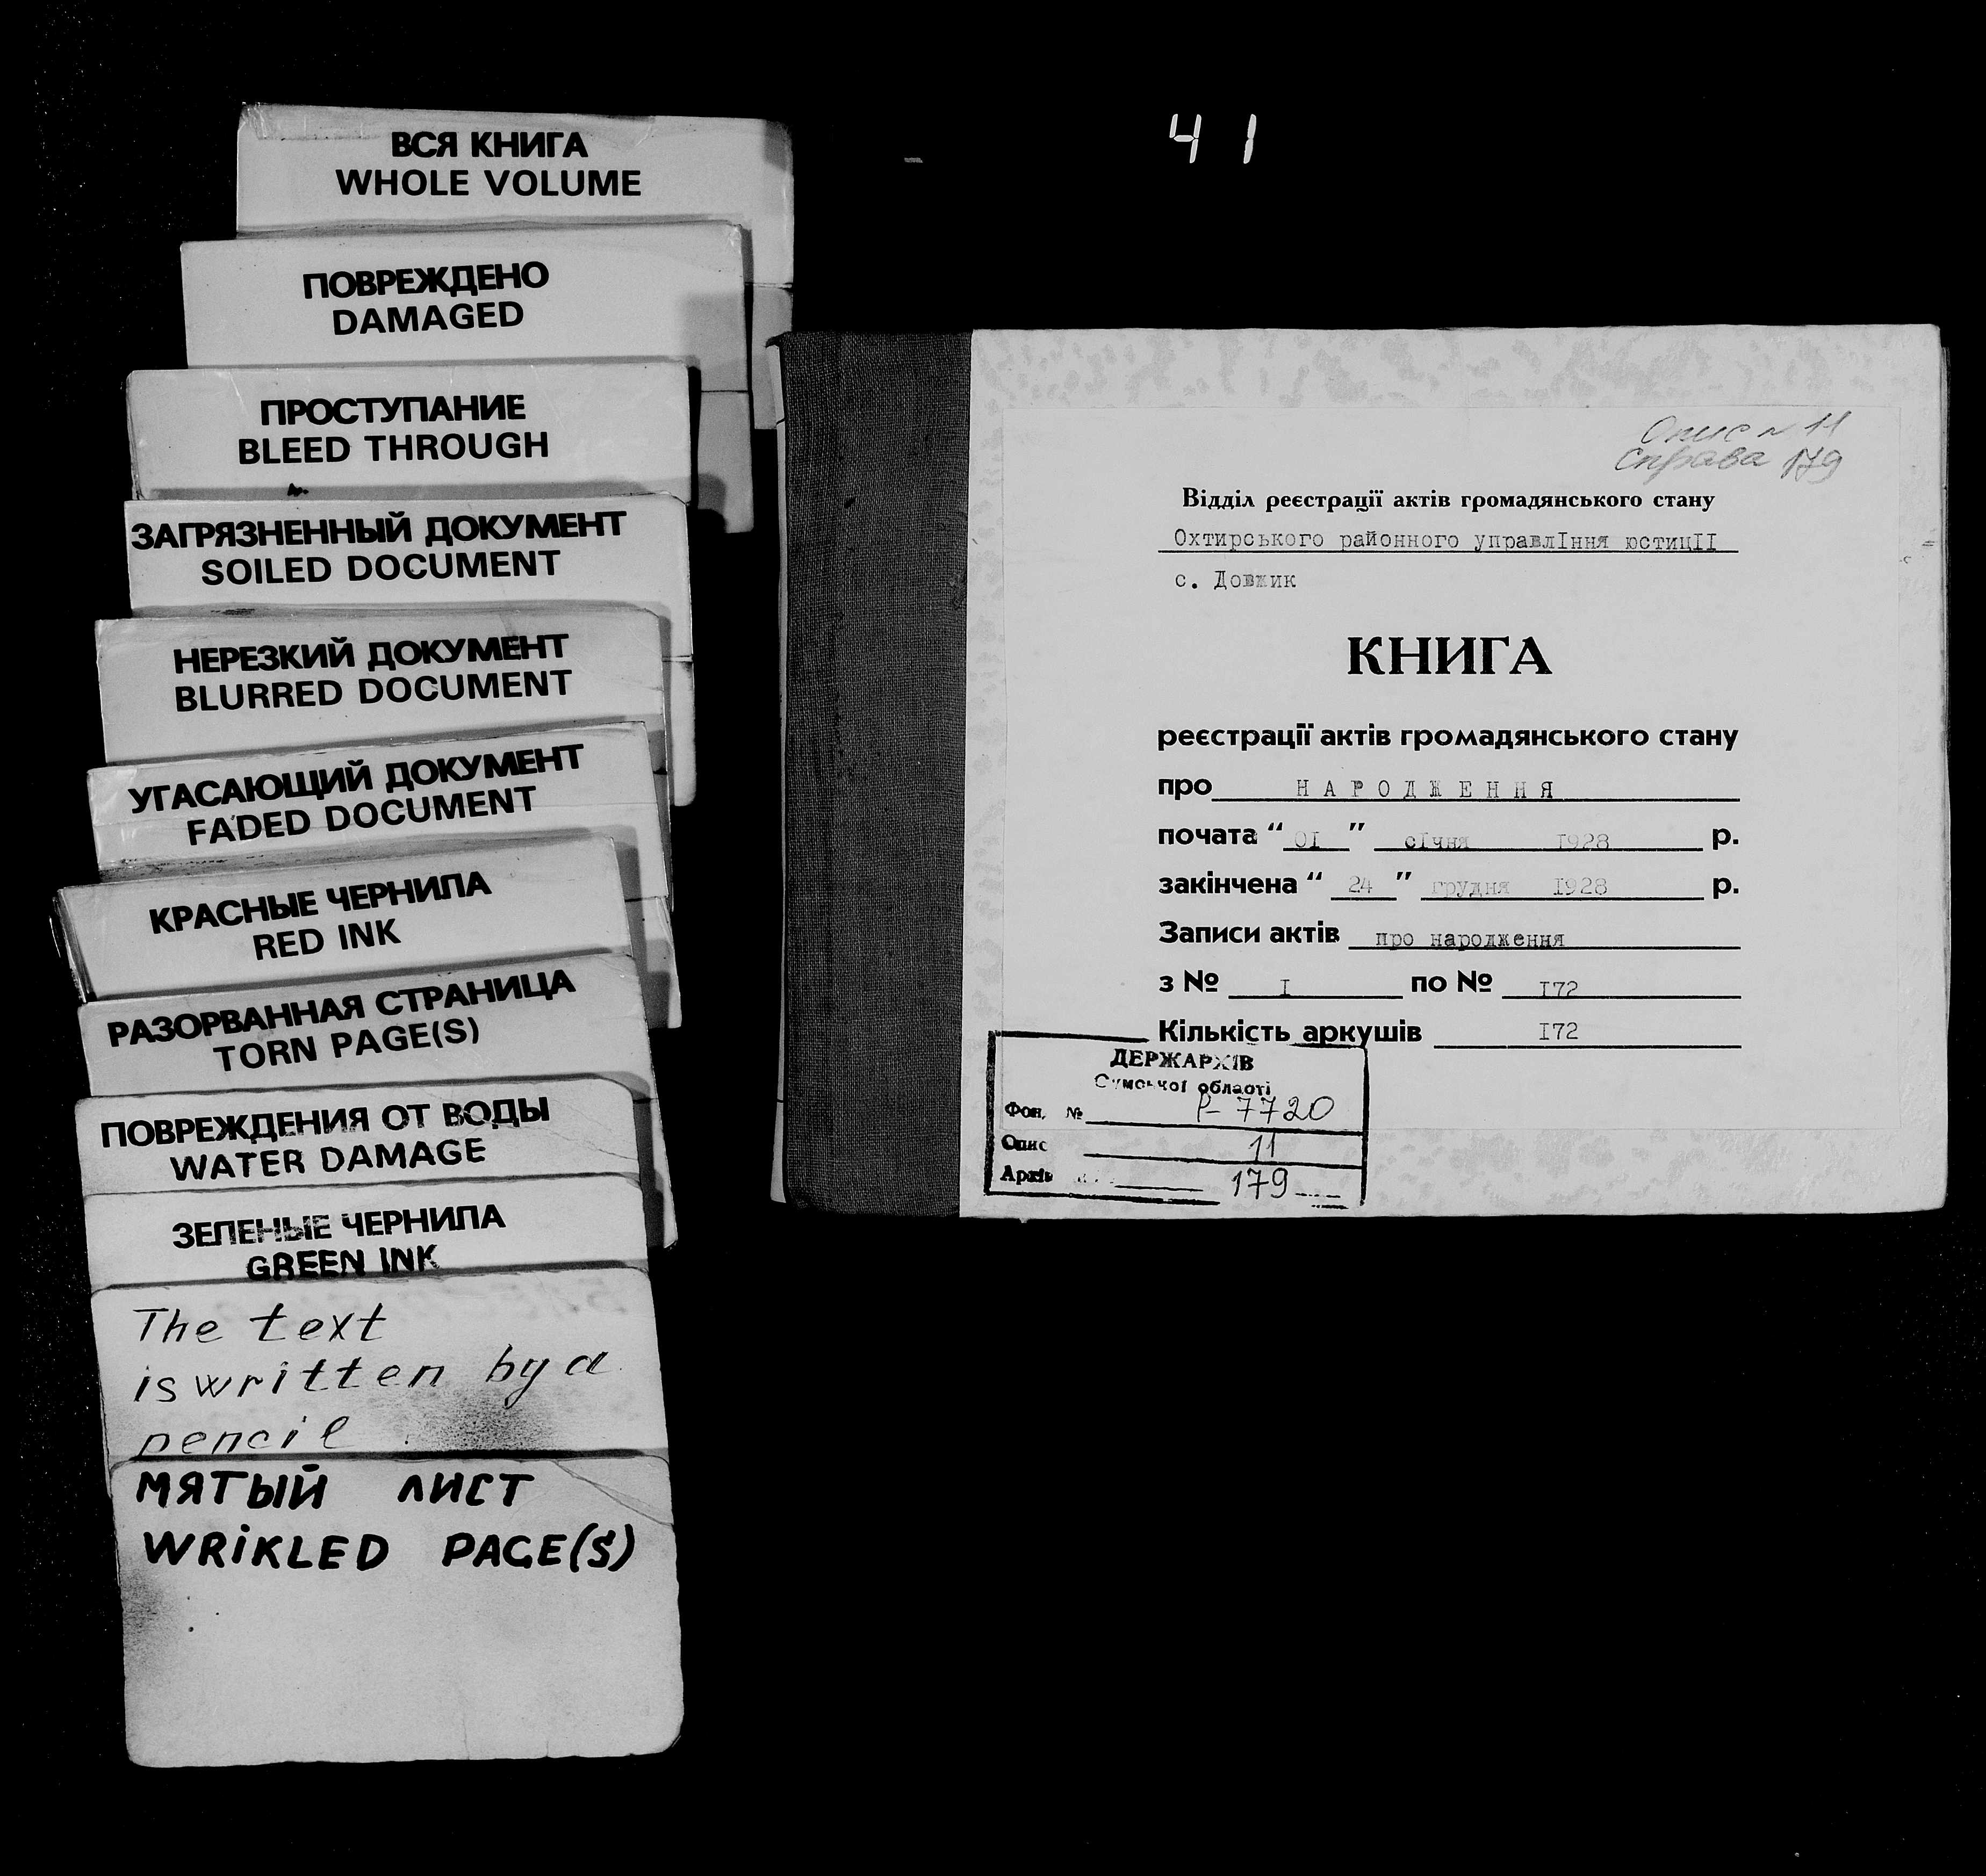 41
ВСЯ КНИГА
WHOLE VOLUME
ПОВРЕЖДЕНО
DAMAGED
ПРОСТУПАНИЕ
BLEED THROUGH
ЗАГРЯЗНЕННЫЙ ДОКУМЕНТ
SOILED DOCUMENT
НЕРЕЗКИЙ ДОКУМЕНТ
BLURRED DOCUMENT
УГАСАЮЩИЙ ДОКУМЕНТ
FADED DOCUMENT
КРАСНЫЕ ЧЕРНИЛА
RED INK
РАЗОРВАННАЯ СТРАНИЦА
TORN PAGE(S)
ПОВРЕЖДЕНИЯ ОТ ВОДЫ
WATER DAMAGE
ЗЕЛЕНЫЕ ЧЕРНИЛА
GREEN INK
The text
is written by a
pencil
МЯТЫЙ ЛИСТ
WRIKLED PAGE(S)
Опис № 11
Справа 179
Відділ реєстрації актів громадянського стану
Охтирського районного управлІння юстицІІ
с. Довжик
КНИГА
реєстрації актів громадянського стану
про НАРОДЖЕННЯ
почата “ 0I ” сІчня I928 р.
закінчена “ 24 ” грудня I928 р.
Записи актів про народження
з № I по № I72
Кількість аркушів I72
ДЕРЖАРХІВ
Сумської області
Фон. № Р-7720
Опис 11
Архів 179